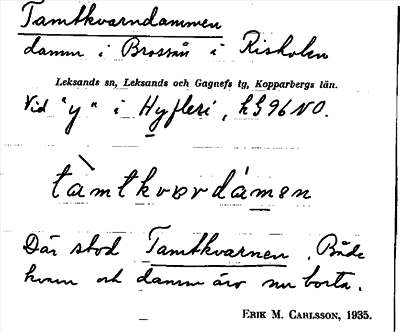 Tamtkvarndammen
damm i Brossån i Risholn
Leksands sn, Leksands och Gagnefs tg, Kopparbergs län.
Vid "y" i Hyfleri, hS96NO.
tàmtkvərdámən
Där stod Tamtkvarnen. Både
kvarn och damm äro nu borta.
ERIK M. CARLSSON, 1935.